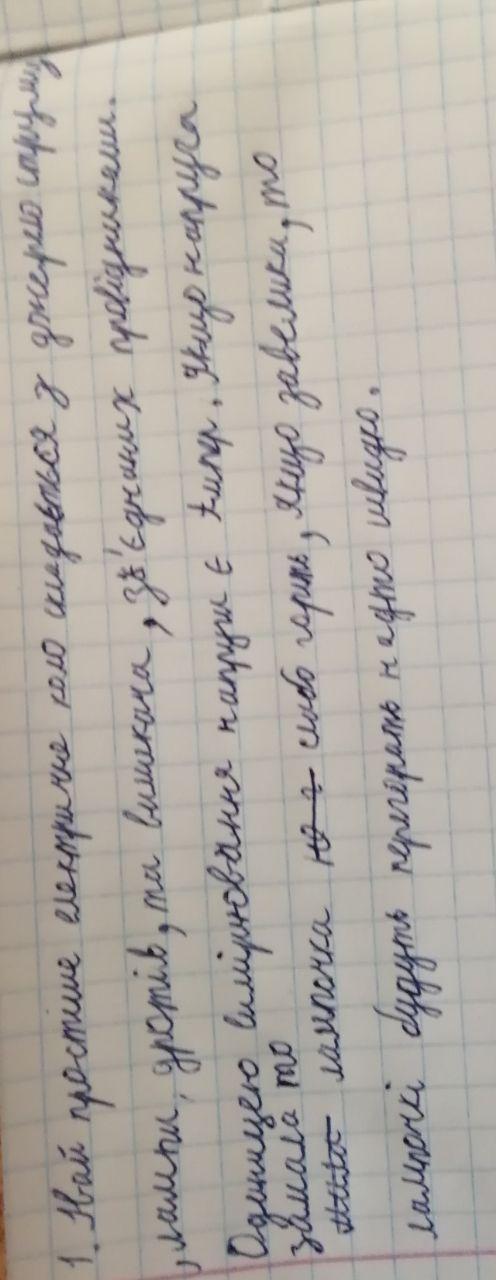 1. Най простіше електричне коло складається з джерело струму
, лампи, дротів, та вимикача, зв'єднаних провідниками.
Одиницею вимірювання напруги є Ампер. Якщо напруга
замала то лампочка слабо горить, якщо завелика, то
лампочкі будуть перегорать надто швидко.